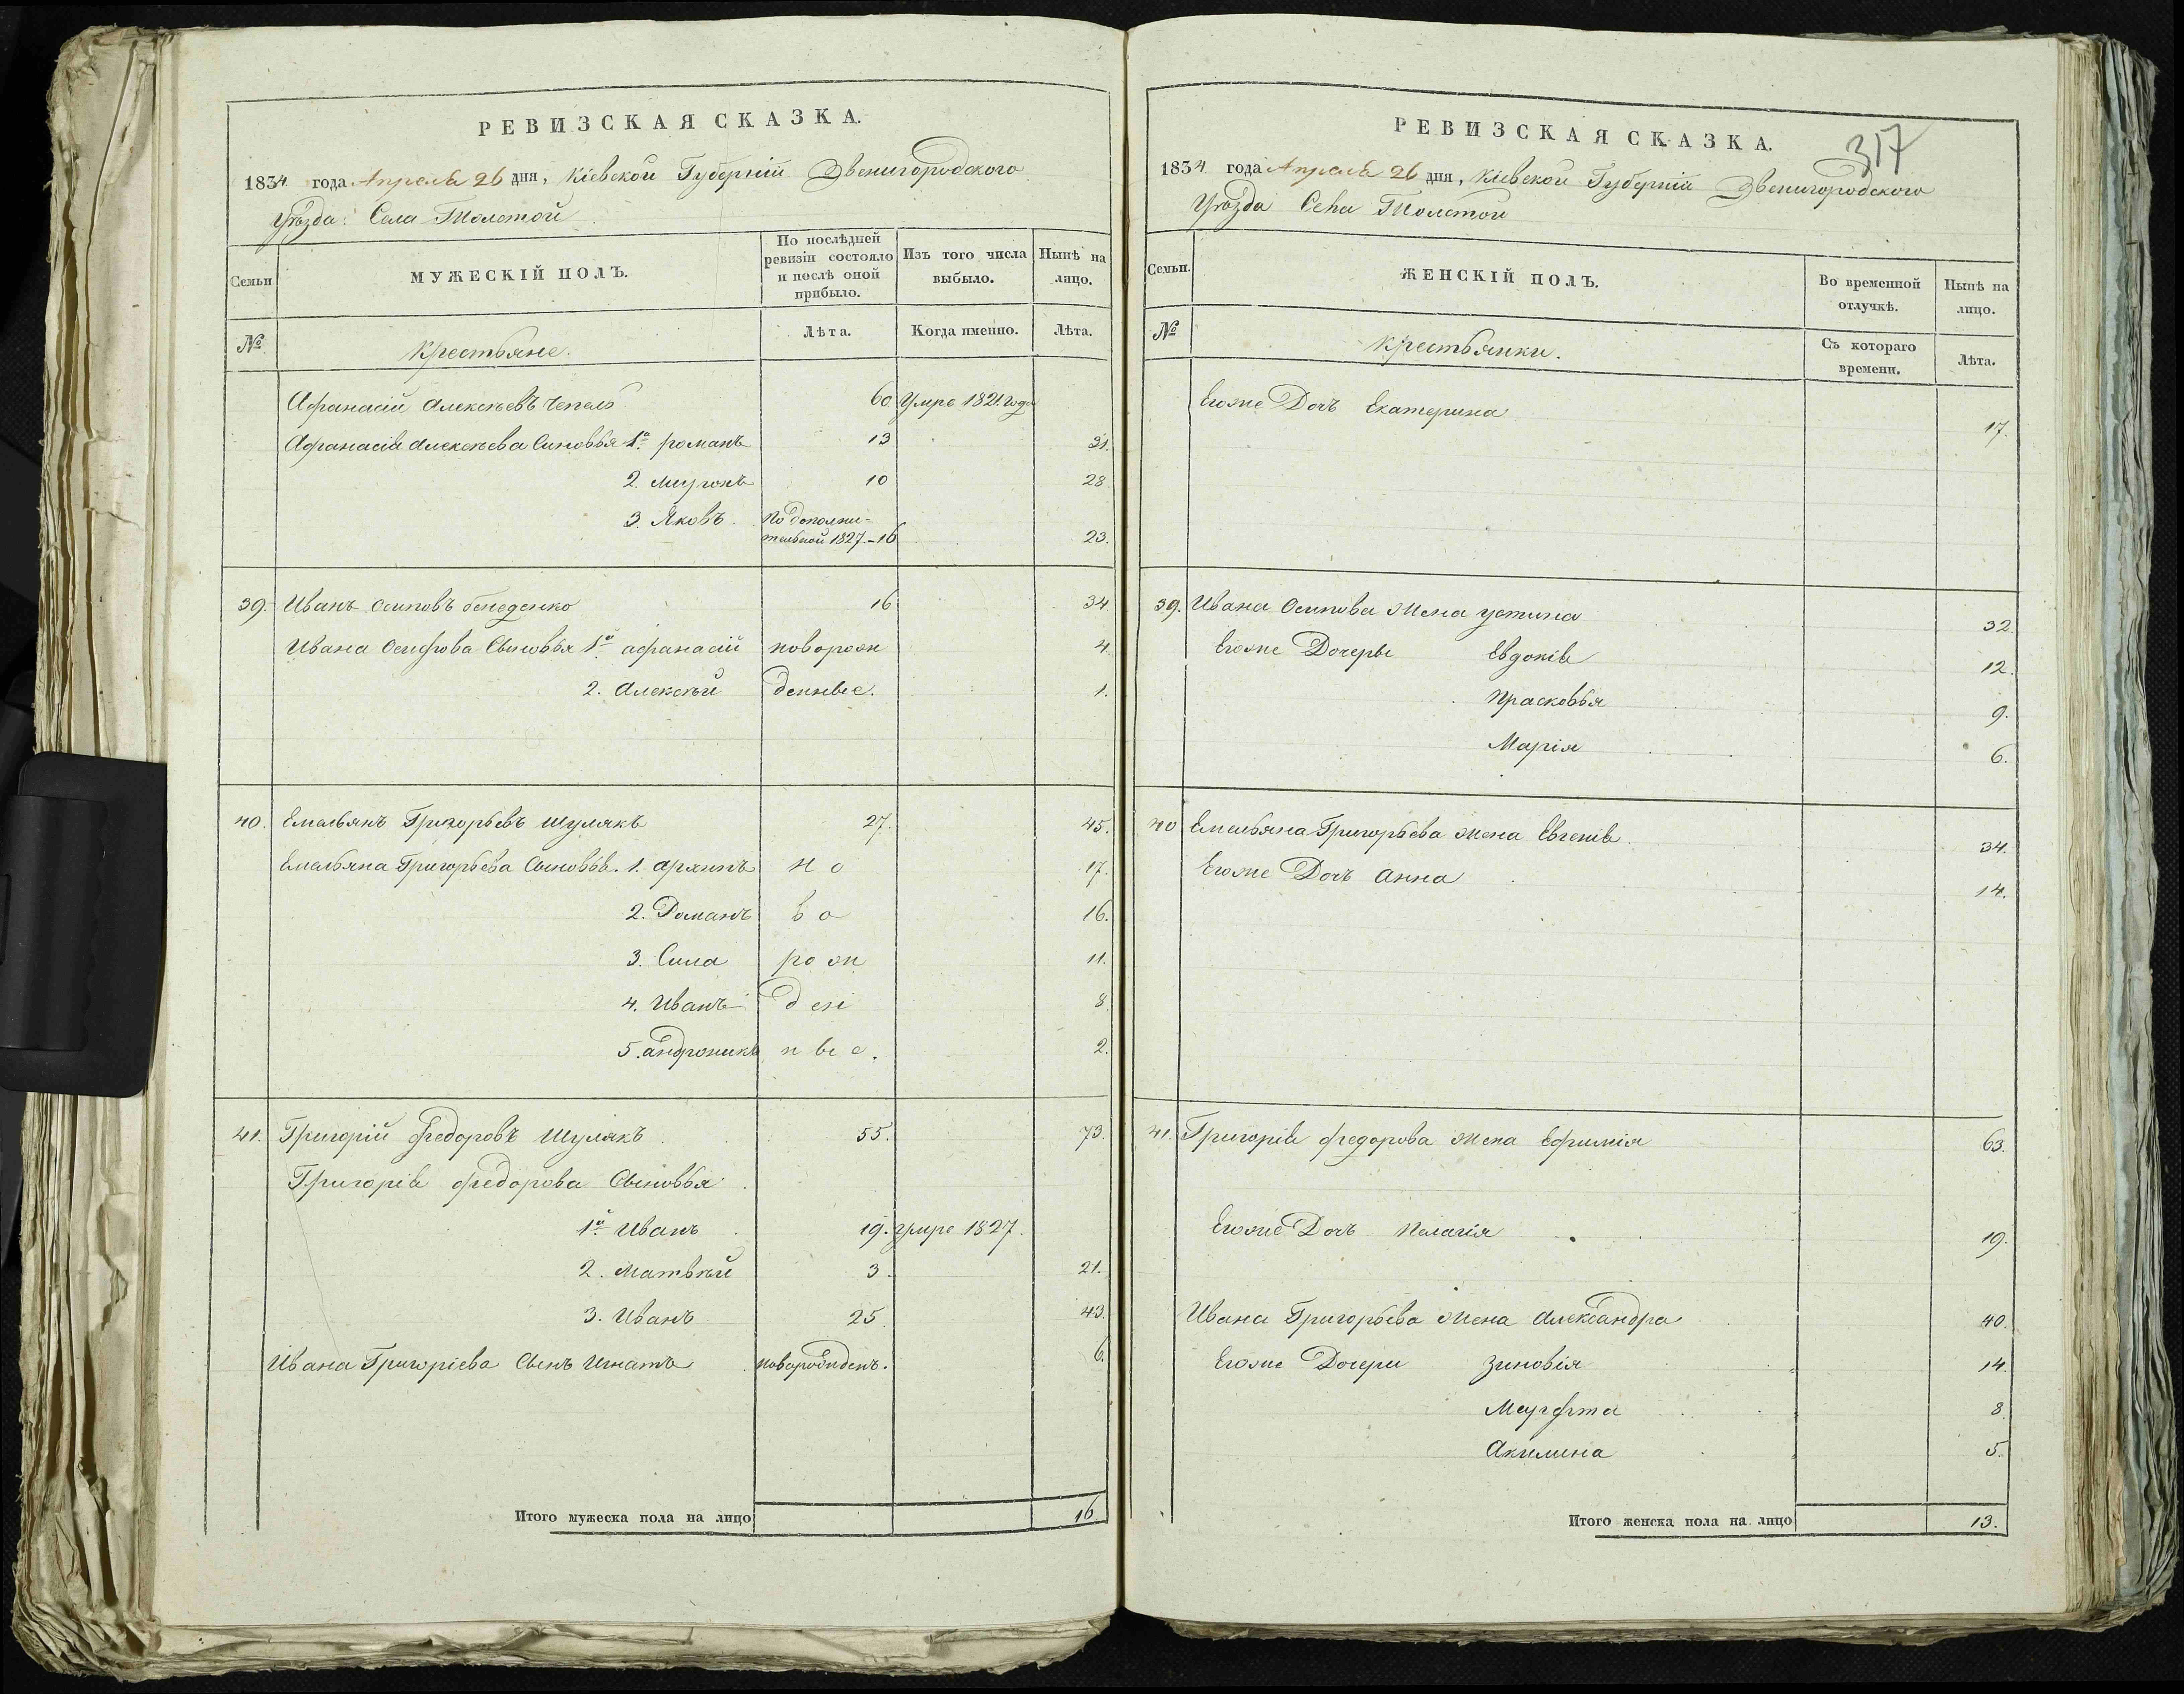 РЕВИЗСКАЯ СКАЗКА.
1834 года Апреля 26 дня, Кіевской Губерніи Звенигородского
Уѣзда: Села Толстой
Семьи
МУЖЕСКІЙ ПОЛЪ.
По послѣдней ревизіи состояло и послѣ оной прибыло.
Изъ того числа выбыло.
Нынѣ на лицо.
№
Крестьяне.
Лѣта.
Когда именно.
Лѣта.
Афанасій Алексѣевъ Чепель 60 Умре 1821 года
Афанасія Алексѣева Сыновья 1й романъ 13 31.
2. Миронъ 10 28.
3. Яковъ По дополни=
тельной 1827.-16 23.
39. Иванъ Осиповъ 16 34.
Ивана Осифова Сыновья 1й афанасій новорож 4.
2. Алексѣй денные. 1.
40. Емельянъ Григорьевъ Шулякъ 27. 45.
Емельяна Григорьева Сыновья. 1. архипъ но 17.
2. Романъ во 16.
3. Сила рож 11.
4. Иванъ ден 8
5. андроникъ ные. 2.
41. Григорій Федоровъ Шулякъ 55. 73.
Григорія федорова Сыновья
1й Иванъ 19. умре 1827.
2. Матвѣй 3. 21.
3. Иванъ 25. 43.
Ивана Григоріева Сынъ Игнатъ новорожденъ. 6.
Итого мужеска пола на лицо 16
РЕВИЗСКАЯ СКАЗКА.
317
1834 года Апреля 26 дня, Кіевской Губерніи Звенигородского
Уѣзда Села Толстой
Семьи.
ЖЕНСКІЙ ПОЛЪ.
Во временной отлучкѣ.
Нынѣ на лицо.
№
Крестьянки.
Съ котораго времени.
Лѣта.
Егоже Дочь Екатерина 17.
39. Ивана Осипова Жена устина 32.
Егоже Дочеры Евдокія 12.
Прасковья 9.
Марія 6.
40 Емельяна Григорьева жена Евгенія 34.
Егоже Дочь Анна 14.
41. Григорія федорова жена Ефимія 63.
Егоже Дочь Пелагія 19.
Ивана Григорьева Жена Александра 40.
Егоже Дочери Зиновія 14.
Марфта 8
Акилина 5.
Итого женска пола на лицо 13.